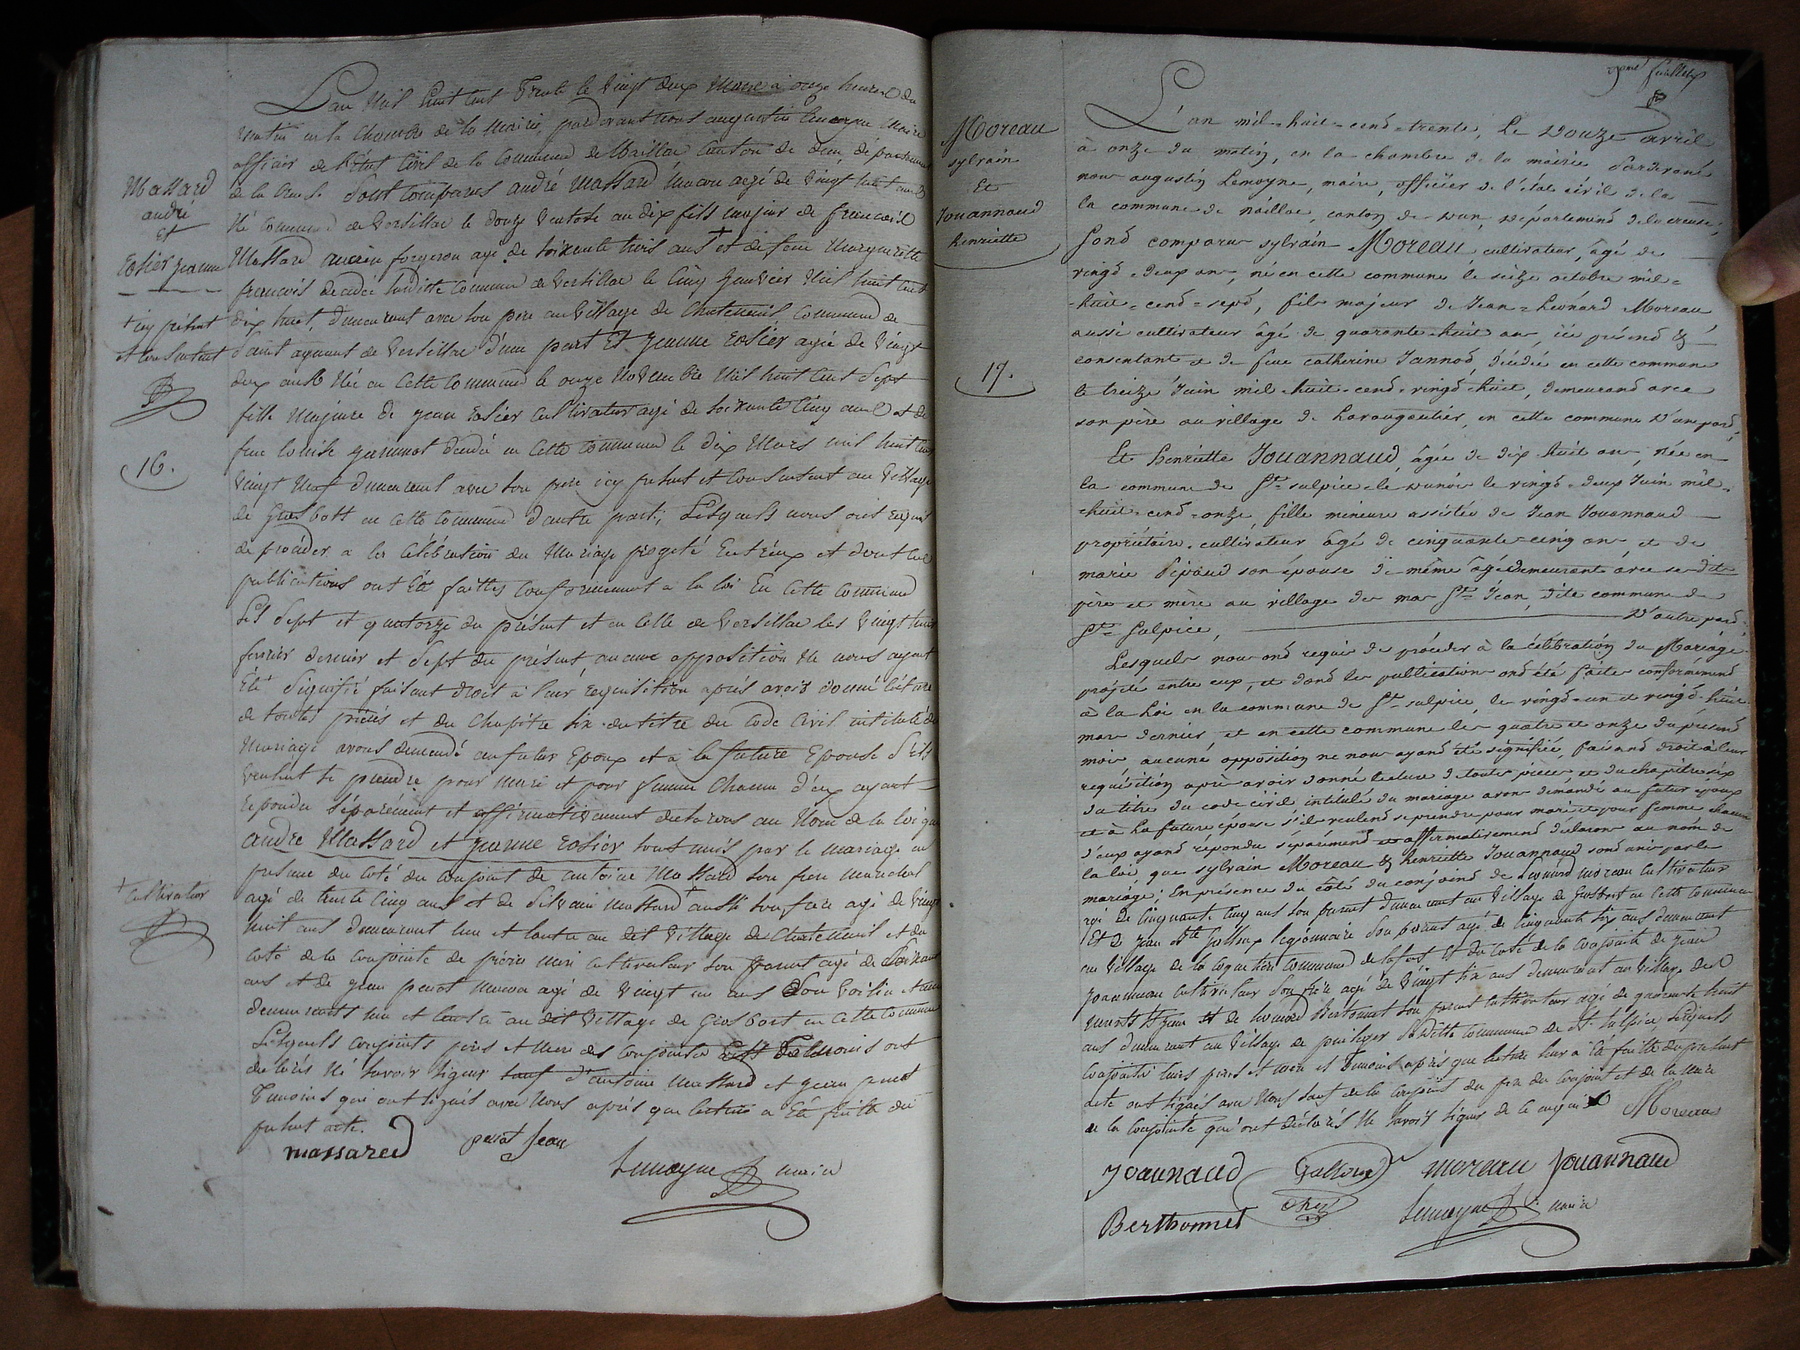 L'an Mil huit cent Trente le Vingt deux Mars à onze heures du
matin en la Chambre de la Mairie, pardevant nous augustin Lemoyne Maire
officier de l'état Civil de la Commune de Naillac Canton de Dun, département
de la Creuse. Sont comparus andré Massard Macon agé de Vingt huit ans
Né Commune de Versillac le douze Ventose an dix fils majeur de francois
Massard ancien forgeron agé de soixante trois ans + et de feue Marguerite
francois decedée susdite Commune de Versillac le Cinq Janvier Mil huit Cent
dix huit, demeurant avec son père au Village de Chateneuil Commune de
Saint agnant de Versillac d'une part Et Jeanne Rosier agée de Vingt
deux ans Née en Cette Commune le onze Novembre Mil huit Cent Sept
fille Majeure de jean Rosier Cultivateur agé de soixante Cinq ans et de
feue Louise décédée en Cette Commune le dix Mars mil huit Cent
Vingt Neuf demeurant avec son père icy présent et Consentant au Village
de Grosbost en Cette Commune d'autre part; Lesquels nous ont requis
de procéder a la Célébration du Mariage projeté Entr'eux et dont les
publications ont Eté faittes Conformément a la loi En Cette Commune
Les Sept et quatorze du présent et en Celle de Versillac les Vingt huit
fevrier dernier et Sept du présent aucune opposition Ne nous ayant
Eté Signifié faisant droit a leur requisition après avoir donné lecture
de toutes pièces et du Chapitre six du titre du Code Civil intitulé du
Mariage avons demandé au futur Epoux et a la future Epouse s'ils
Veulent se prendre pour Mari et pour femme Chacun d'Eux ayant
repondu Séparément et affirmativement declarons au Nom de la loi que
andre Massard et jeanne Rosier sont unis par le mariage en
présence du Coté du Conjoint de antoine Massard son frere
agé de trente Cinq ans et de Silvain Massard + aussi son frere agé de Vingt
huit ans demeurant l'un et l'autre au dit Village de Chateneuil et du
Coté de la Conjointe de Cultivateur son parent agé de Soixante
ans et de jean perrot Macon agé de Vingt un ans Son Voisin
demeurants l'un et l'autre au dit Village de Grosbost en Cette Commune
Lesquels Conjoints pères et les Témoins ont
declarés Né Savoir Signer Sauf d'antoine Massard et jean perrot
Témoins qui ont signés avec Nous après que lecture a Eté faitte du
présent acte.
massared perrot Jean
Lemoyne maire
Massard
andré
et
Rosier jeanne
+ icy présent
et Consentant
16.
+ Cultivateur
feuillet
Moreau
sylvain
Et
Jouannaud
henriette
17.
L'an mil-huit-cent-trente, Le Douze avril
à onze du matin, en la chambre de la mairie Pardevant
nous augustin Lemoyne, maire, officier de l'état civil de la
la commune de Naillac, canton de Dun, département de la creuse;
Sont comparus sylvain Moreau, cultivateur, âgé de
vingt-deux ans, né en cette commune le seize octobre mil-
-huit-cent-sept, fils majeur de Jean-Léonard Moreau,
aussi cultivateur âgé de quarante-huit ans, ici présent &
consentant et de feue catherine Jannot, décédée en cette commune
le treize Juin mil-huit-cent-vingt-huit, demeurant avec
son père au village de Lavaugoutier, en cette commune D'une part,
Et henriette Jouannaud, âgée de dix huit ans, née en
la commune de Ste sulpice-le-dunois le vingt-deux Juin mil-
-huit-cent-onze, fille mineure assistée de Jean Jouannaud
propriétaire-cultivateur âgé de cinquante-cinq ans, et de
marie son épouse de même âge demeurant avec ses dits
père et mère au village de mas St Jean, dite commune de
Ste Sulpice, D'autre part.
Lesquels nous ont requis de procéder à la célébration du Mariage
projeté entre eux, et dont les publications ont été faites conformément
à la Loi en la commune de St sulpice, les vingt-un et vingt-huit
mars dernier et en cette commune les quatre et onze du présent
mois aucune opposition ne nous ayant été signifiée, faisant droit à leur
réquisition après avoir donné lecture de toutes pièces et du chapitre six
du titre du code civil intitulé du mariage avons demandé au futur époux
et à La future épouse s'ils veulent se prendre pour mari et pour femme chacun
d'eux ayant répondu séparément et affirmativement déclarons au nom de
la loi, que sylvain Moreau & henriette Jouannaud sont unis par le
mariage; En présence du côté du conjoint de Léonard moreau Cultivateur
agé de Cinquante Cinq ans son parent demeurant au Village de Grosbost en Cette Commune
Et de jean Bte légionnaire son parent agé de Cinquante Six ans demeurant
au Village de la Commune de et du Coté de la Conjointe de jean
Joannaud Cultivateur son frère agé de Vingt Six ans demeurant au Village de
et de Léonard Bertonnet son parent Cultivateur agé de quarante huit
ans demeurant au Village de susditte Commune de St Sulpice, Lesquels
Conjoints leurs pères et mère et Témoins après que lecture leur a Eté faitte du présent
acte ont signés avec Nous Sauf de la Conjointe du père du Conjoint et de la Mère
de la Conjointe qui ont déclarés Né Savoir Signer de ce requis Moreau
Joannaud moreau Jouannaud
Berthonnet Lemoyne maire